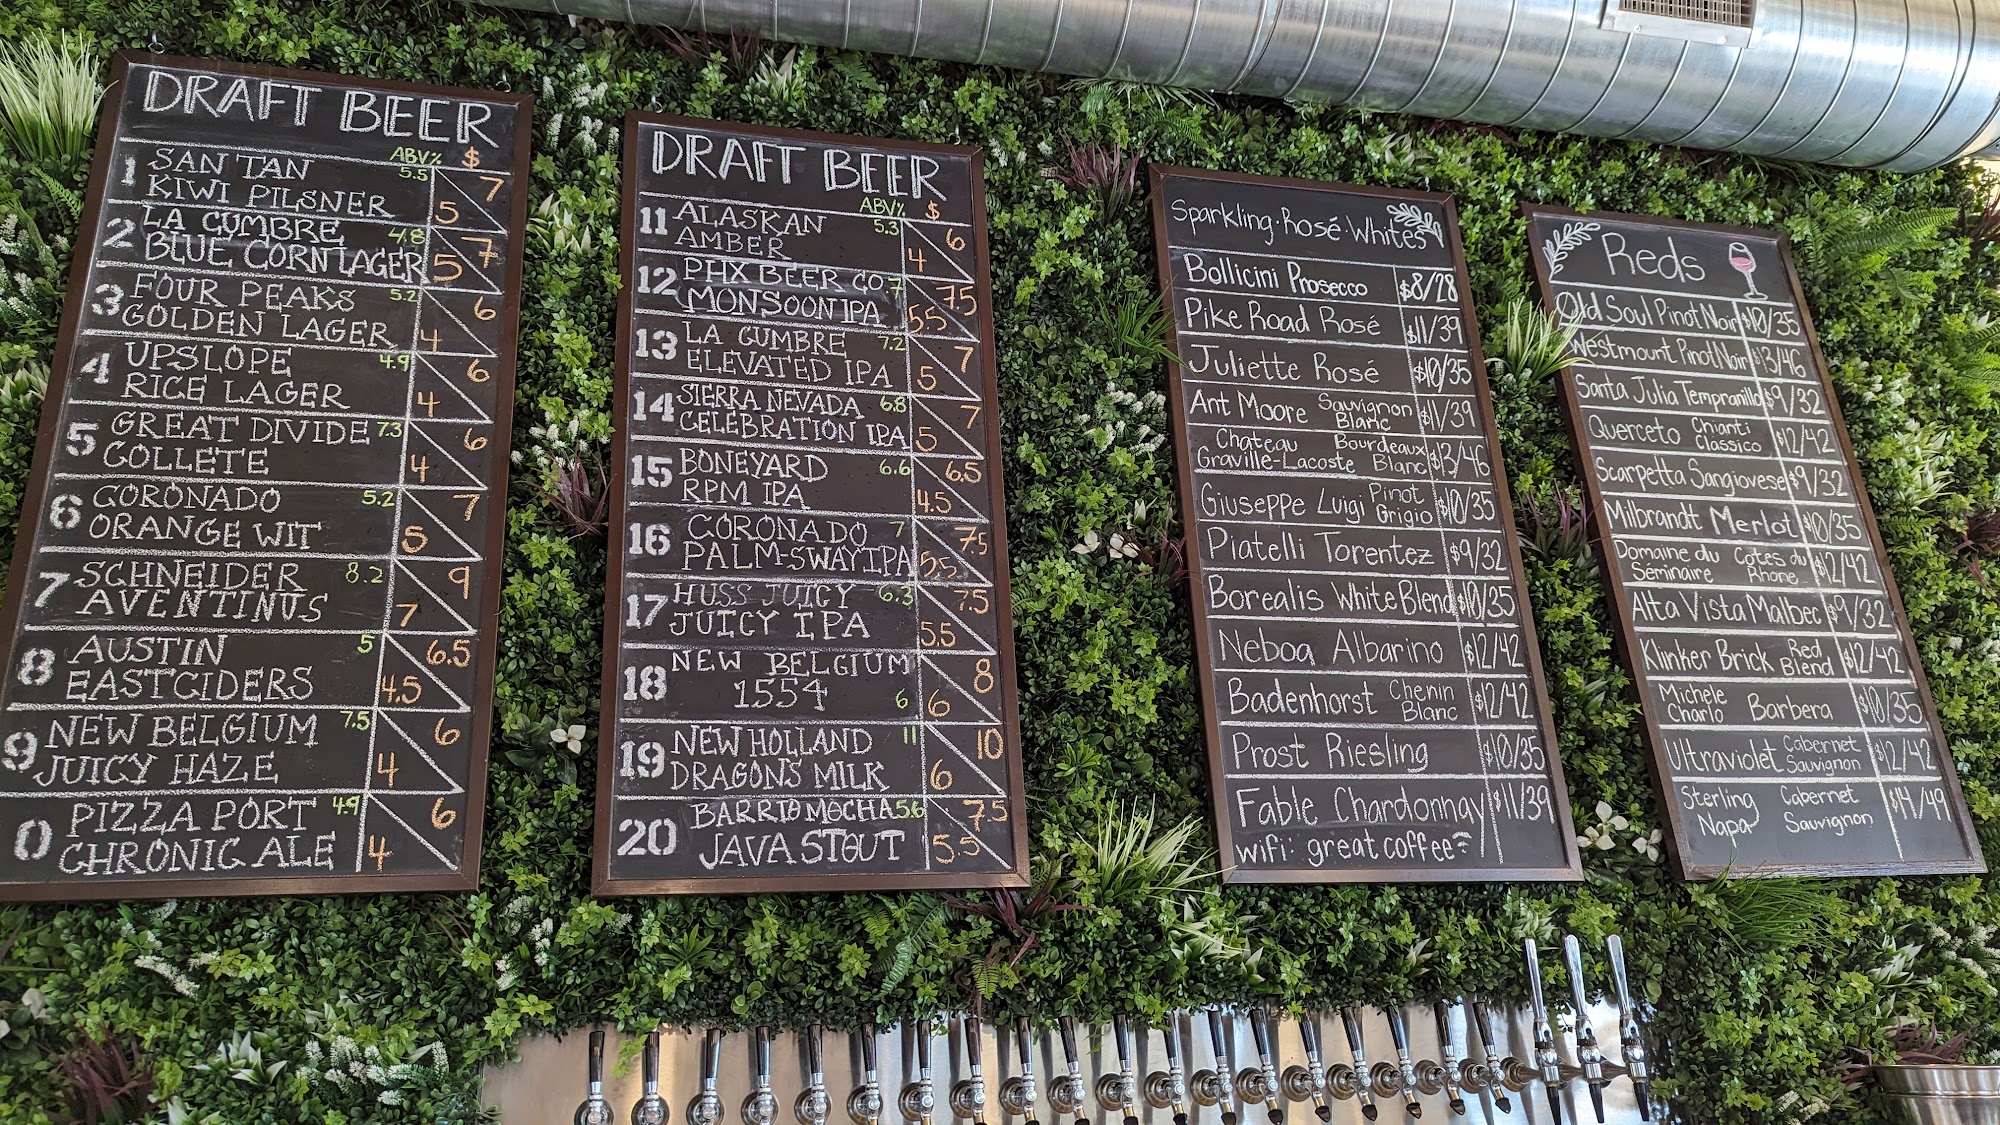 DRAFT BEER
ABV% $
1 SAN TAN 5.5 7
KIWI PILSNER 5
2 LA CUMBRE 4.8 7
BLUE CORN LAGER 5
3 FOUR PEAKS 5.2 6
GOLDEN LAGER 4
4 UPSLOPE 4.9 6
RICE LAGER 4
5 GREAT DIVIDE 7.3 6
COLLETE 4
6 CORONADO 5.2 7
ORANGE WIT 5
7 SCHNEIDER 8.2 9
AVENTINUS 7
8 AUSTIN 5 6.5
EASTCIDERS 4.5
9 NEW BELGIUM 7.5 6
JUICY HAZE 4
0 PIZZA PORT 4.9 6
CHRONIC ALE 4
DRAFT BEER
ABV% $
11 ALASKAN 5.3 6
AMBER 4
12 PHX BEER CO 7 7.5
MONSOON IPA 5.5
13 LA CUMBRE 7.2 7
ELEVATED IPA 5
14 SIERRA NEVADA 6.8 7
CELEBRATION IPA 5
15 BONEYARD 6.6 6.5
RPM IPA 4.5
16 CORONADO 7 7.5
PALM-SWAY IPA 5.5
17 HUSS JUICY 6.3 7.5
JUICY IPA 5.5
18 NEW BELGIUM 8
1554 6 6
19 NEW HOLLAND 11 10
DRAGONS MILK 6
20 BARRIO MOCHA 5.6 7.5
JAVA STOUT 5.5
Sparkling·Rosé·Whites
Bollicini Prosecco $8/28
Pike Road Rosé $11/39
Juliette Rosé $10/35
Ant Moore Sauvignon Blanc $11/39
Chateau Bourdeaux
Graville-Lacoste Blanc $13/46
Giuseppe Luigi Pinot Grigio $10/35
Piatelli Torentez $9/32
Borealis White Blend $10/35
Neboa Albarino $12/42
Badenhorst Chenin Blanc $12/42
Prost Riesling $10/35
Fable Chardonnay $11/39
wifi: greatcoffee
Reds
Old Soul Pinot Noir $10/35
Westmount Pinot Noir $13/46
Santa Julia Tempranillo $9/32
Querceto Chianti Classico $12/42
Scarpetta Sangiovese $9/32
Milbrandt Merlot $10/35
Domaine du Cotes du
Séminaire Rhone $12/42
Alta Vista Malbec $9/32
Klinker Brick Red Blend $12/42
Michele
Charlo Barbera $10/35
Ultraviolet Cabernet Sauvignon $12/42
Sterling Cabernet $14/49
Napa Sauvignon